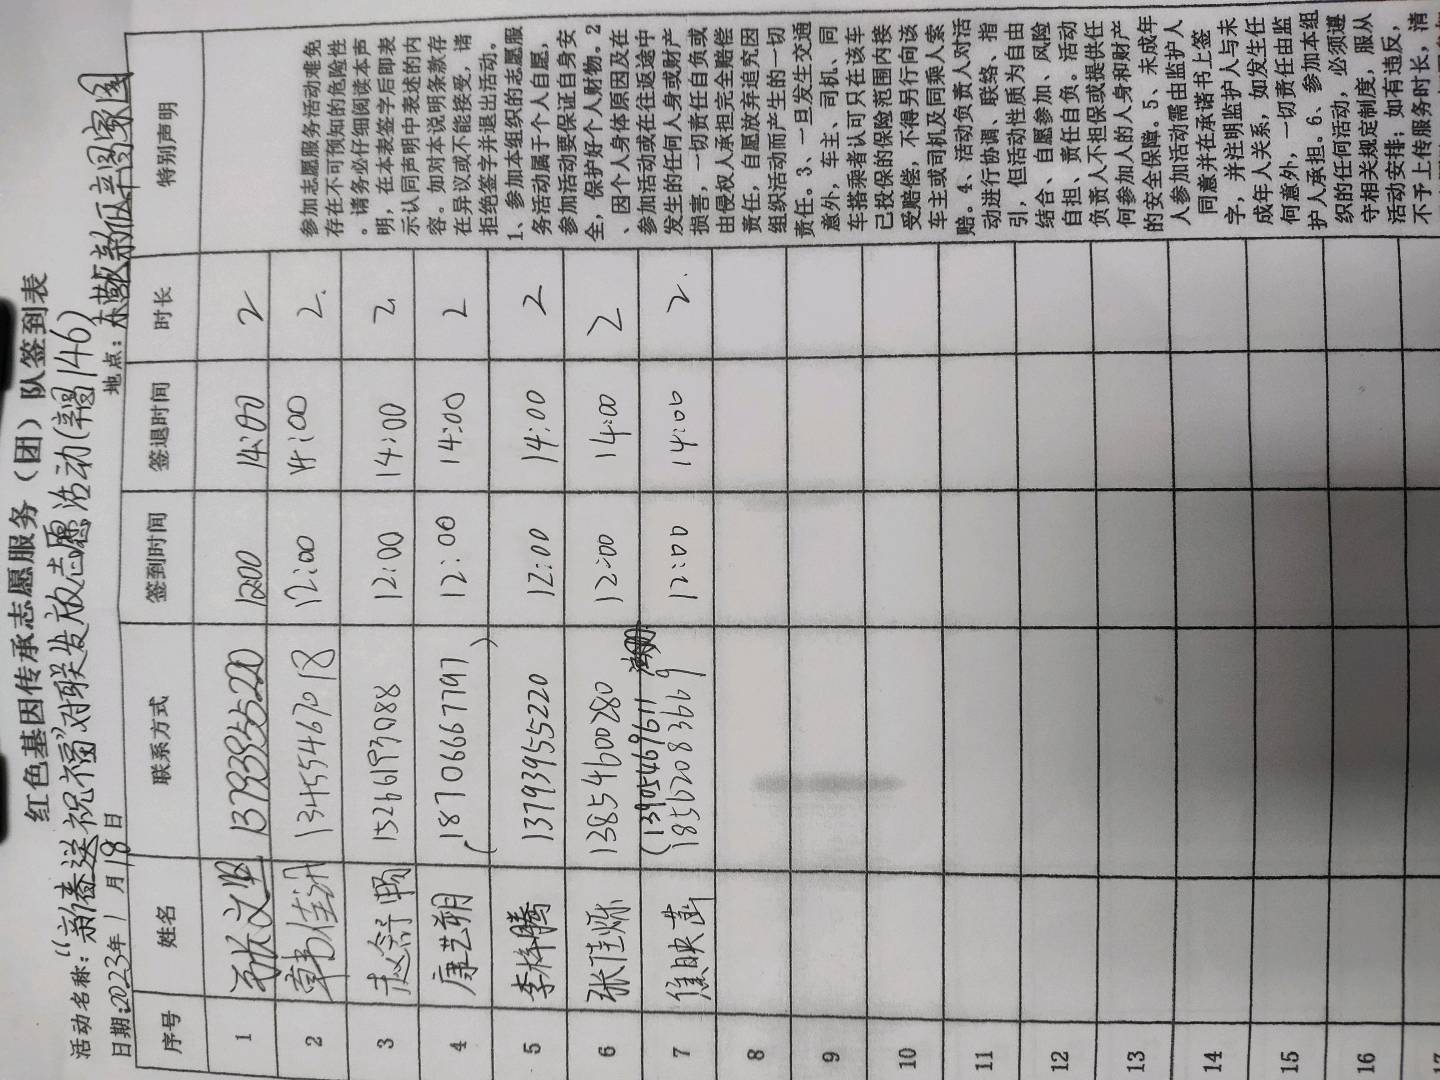 红色基因传承志愿服务（团）队签到表
活动名称：“新春送祝福”对联发放志愿活动(辛店146)
日期：2023年1月18日 地点：
序号 姓名 联系方式 签到时间 签退时间 时长 特别声明
1 13793955220 1200 14:00 2
2 韩佳 13455467018 12:00 14:00 2.
3 赵 畅 12:00 14:00 2
4 康艺朔 (18706667797) 12:00 14:00 2
5 李梓腾 13793955220 12:00 14:00 2
6 张佳烁 13854600280 12:00 14:00 2
7 焦映菡 (13905469611 18562083669 12:00 14:00 2.
8
9
10
11
12
13
14
15
16
17
参加志愿服务活动难免
存在不可预知的危险性
。请务必仔细阅读本声
明，在本表签字后即表
示认同声明中表述的内
容。如对本说明条款存
在异议或不能接受，请
拒绝签字并退出活动。
1、参加本组织的志愿服
务活动属于个人自愿，
参加活动要保证自身安
全，保护好个人财物。2
、因个人身体原因及在
参加活动或在往返途中
发生的任何人身或财产
损害，一切责任自负或
由侵权人承担完全赔偿
责任，自愿放弃追究因
组织活动而产生的一切
责任。3、一旦发生交通
意外，车主、司机、同
车搭乘者认可只在该车
已投保的保险范围内接
受赔偿，不得另行向该
车主或司机及同乘人索
赔。4、活动负责人对活
动进行协调、联络、指
引，但活动性质为自由
结合、自愿参加、风险
自担、责任自负。活动
负责人不担保或提供任
何参加人的人身和财产
的安全保障。5、未成年
人参加活动需由监护人
同意并在承诺书上签
字，并注明监护人与未
成年人关系，如发生任
何意外，一切责任由监
护人承担。6、参加本组
织的任何活动，必须遵
守相关规定制度，服从
活动安排；如有违反，
不予上传服务时长，清